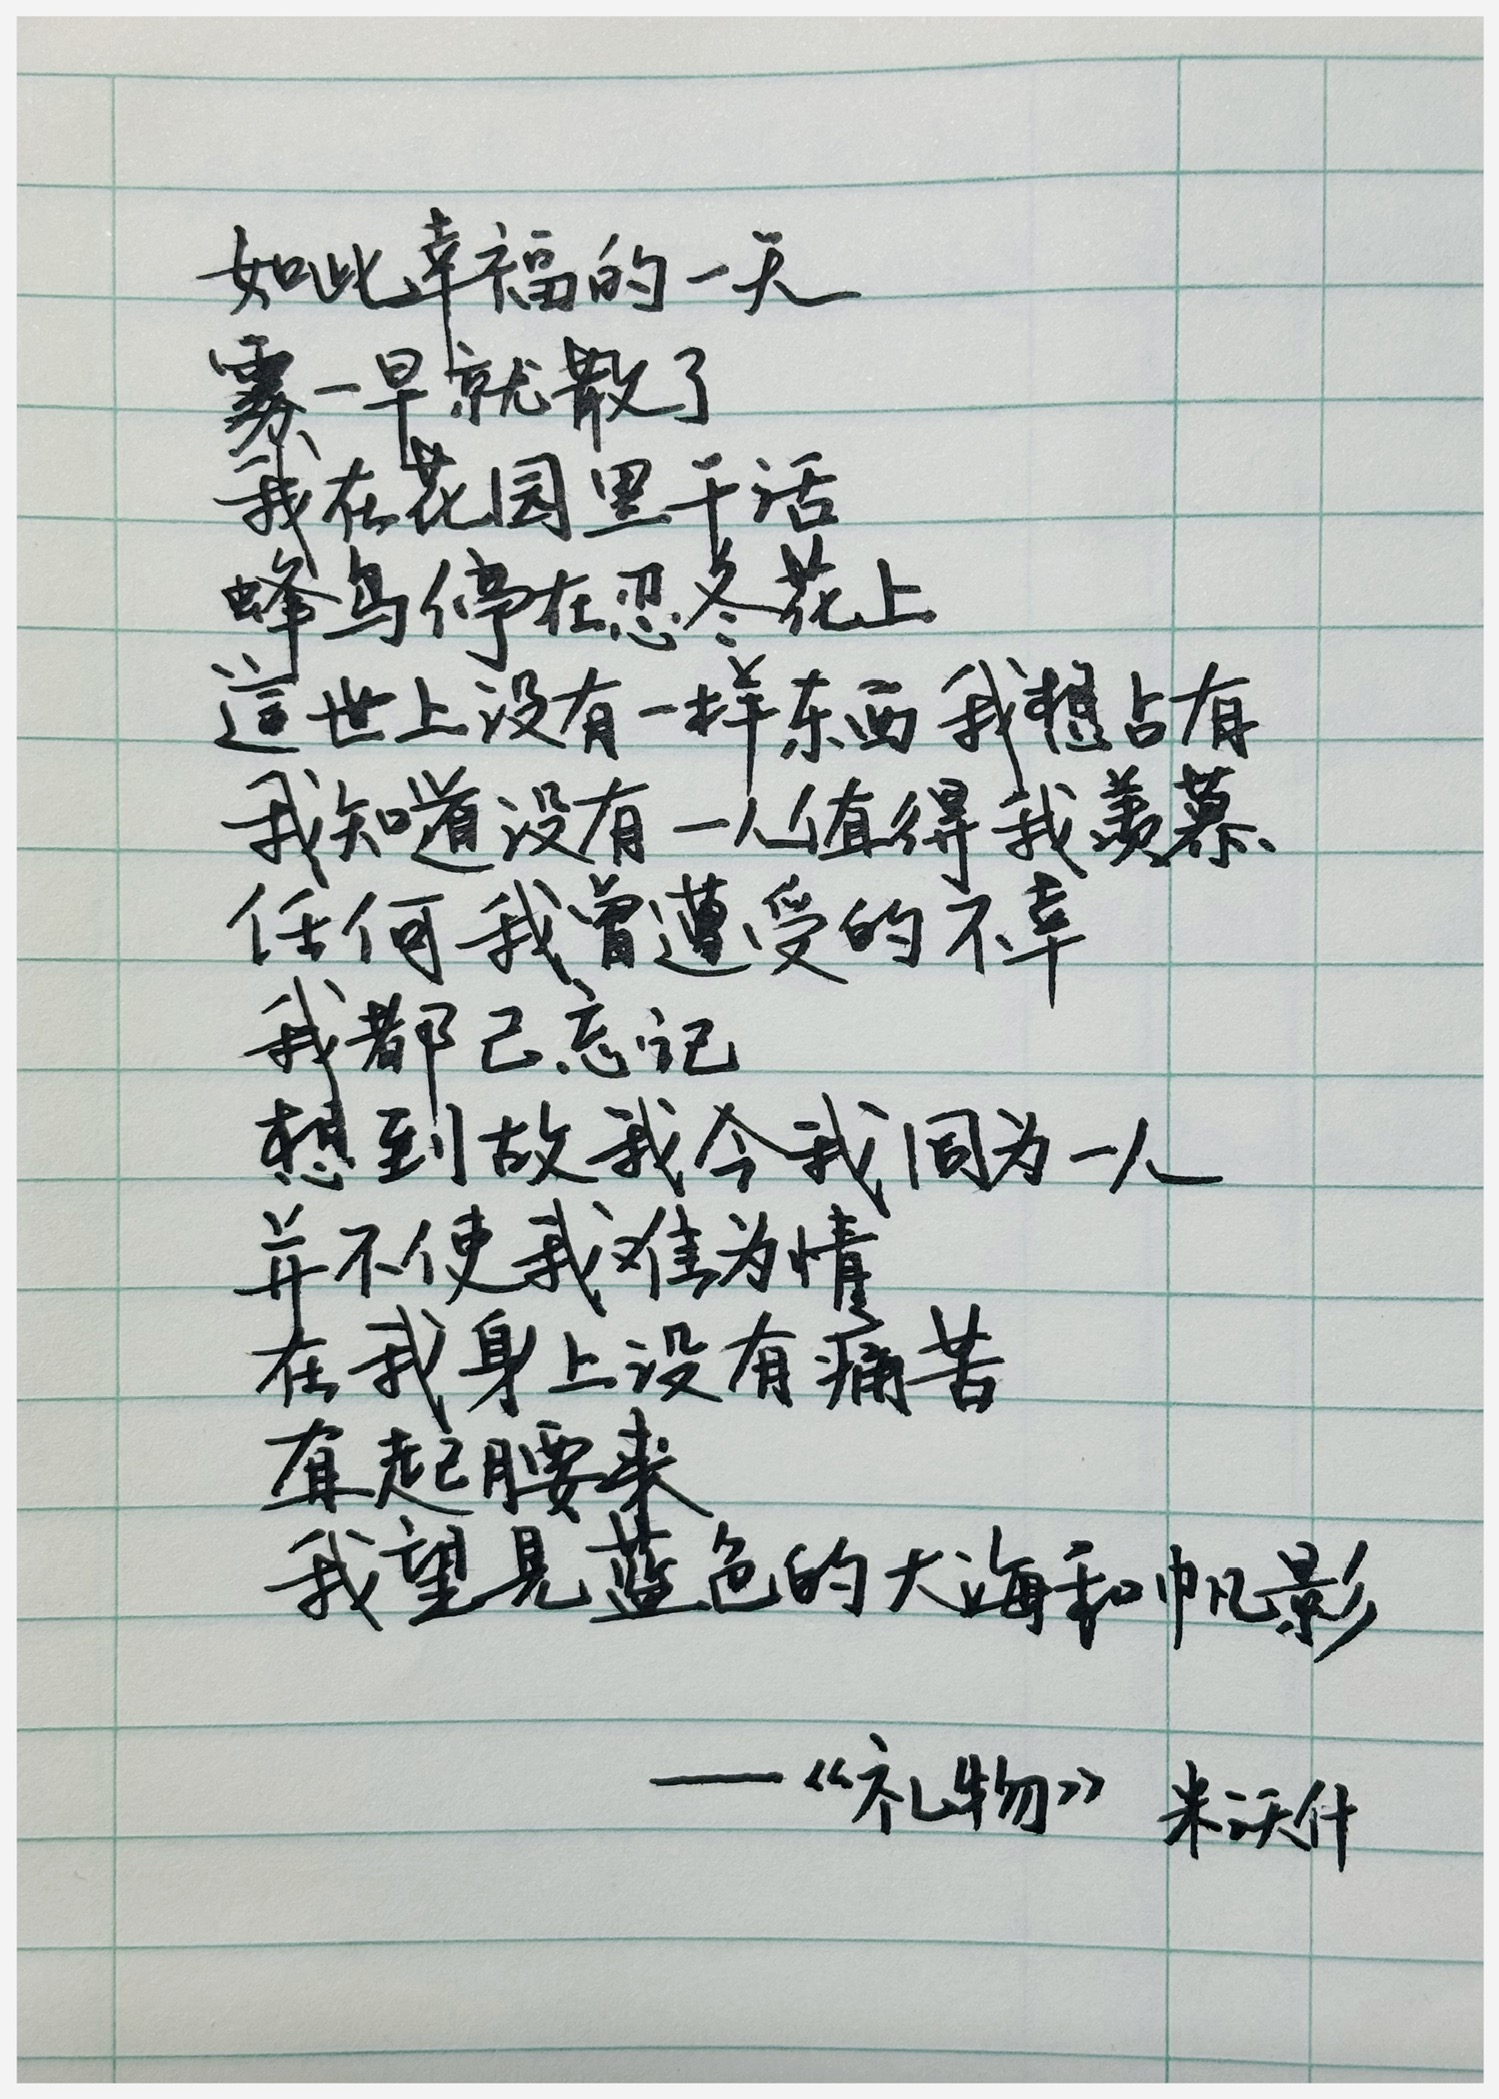 如此幸福的一天
雾一早就散了
我在花园里干活
蜂鸟停在忍冬花上
這世上没有一样东西我想占有
我知道没有一人值得我羡慕
任何我曾遭受的不幸
我都己忘记
想到故我今我同为一人
并不使我难为情
在我身上没有痛苦
直起腰来
我望见蓝色的大海和帆影
——《礼物》 米沃什